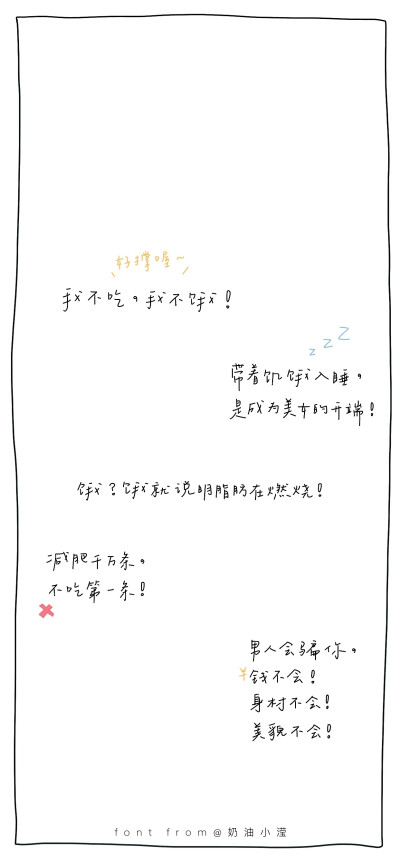 好撑喔~
我不吃。我不饿!
z z Z
带着饥饿入睡。
是成为美女的开端!
饿?饿就说明脂肪在燃烧!
减肥千万条。
不吃第一条!
男人会骗你。
¥钱不会!
身材不会!
美貌不会!
font from@奶油小滢